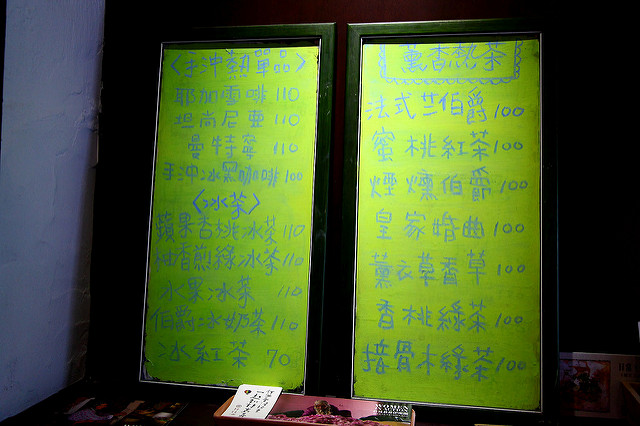 〈手沖熱單品〉
耶加雪啡 110
坦尚尼亞 110
曼特寧 110
手沖冰黑咖啡 100
〈冰茶〉
蘋果香桃冰茶 110
柚香煎綠冰茶 110
水果冰茶 110
伯爵冰奶茶 110
冰紅茶 70
薰香熱茶
法式芒伯爵 100
蜜桃紅茶 100
煙燻伯爵 100
皇家婚曲 100
薰衣草香草 100
香桃綠茶 100
接骨木綠茶 100